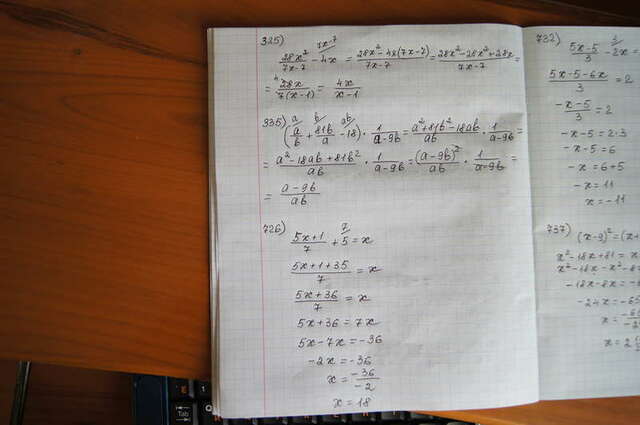 325)
7x-7
28x²/7x-7 - 4x = 28x²-4x(7x-7)/7x-7 = 28x²-28x²+28x/7x-7 =
= 4 28x/7(x-1) = 4x/x-1
335)
a b ab
(a/b + 81b/a - 18) · 1/a-9b = a²+81b²-18ab/ab · 1/a-9b =
= a²-18ab+81b²/ab · 1/a-9b = (a-9b)²/ab · 1/a-9b =
= a-9b/ab
726)
7
5x+1/7 + 5 = x
5x+1+35/7 = x
5x+36/7 = x
5x+36 = 7x
5x-7x = -36
-2x = -36
x = -36/-2
x = 18
732)
3
5x-5/3 - 2x =
5x-5-6x/3 = 2
-x-5/3 = 2
-x-5 = 2·3
-x-5 = 6
-x = 6+5
-x = 11
x = -11
737)
(x-9)² = (x+
x²-18x+81 =
x²-18x-x²-8
-18x-8x =
-24x = -6
x =
x = 2
Tab